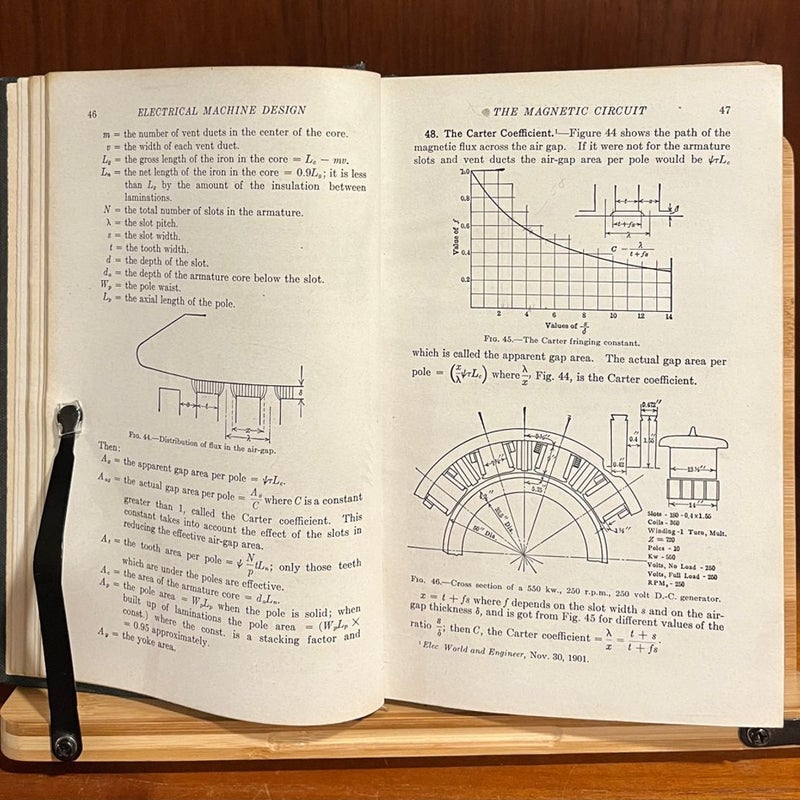 46 ELECTRICAL MACHINE DESIGN
m = the number of vent ducts in the center of the core.
v = the width of each vent duct.
L_g = the gross length of the iron in the core = L_c − mv.
L_n = the net length of the iron in the core = 0.9L_g; it is less
than L_g by the amount of the insulation between
laminations.
N = the total number of slots in the armature.
λ = the slot pitch.
s = the slot width.
t = the tooth width.
d = the depth of the slot.
d_a = the depth of the armature core below the slot.
W_p = the pole waist.
L_p = the axial length of the pole.
s t δ
x
λ
FIG. 44.—Distribution of flux in the air-gap.
Then:
A_g = the apparent gap area per pole = ψτL_c.
A_ag = the actual gap area per pole = A_g/C where C is a constant
greater than 1, called the Carter coefficient. This
constant takes into account the effect of the slots in
reducing the effective air-gap area.
A_t = the tooth area per pole = ψ N/p tL_n; only those teeth
which are under the poles are effective.
A_c = the area of the armature core = d_aL_n.
A_p = the pole area = W_pL_p when the pole is solid; when
built up of laminations the pole area = (W_pL_p ×
const.) where the const. is a stacking factor and
= 0.95 approximately.
A_y = the yoke area.
THE MAGNETIC CIRCUIT 47
48. The Carter Coefficient.¹—Figure 44 shows the path of the
magnetic flux across the air gap. If it were not for the armature
slots and vent ducts the air-gap area per pole would be ψτL_c
1.0
0.8
0.6
0.4
0.2
Value of f
t s δ
t+fs
λ
C = λ/(t+fs)
2 4 6 8 10 12 14
Values of s/δ
FIG. 45.—The Carter fringing constant.
which is called the apparent gap area. The actual gap area per
pole = (x/λ ψτL_c) where λ/x, Fig. 44, is the Carter coefficient.
0.4"
1.55"
13½"
14"
Slots - 180 - 0.4×1.55
Coils - 360
Winding - 1 Turn, Mult.
Z = 720
Poles - 10
Kw - 550
Volts, No Load - 250
Volts, Full Load - 250
RPM, - 250
FIG. 46.—Cross section of a 550 kw., 250 r.p.m., 250 volt D.-C. generator.
x = t + fs where f depends on the slot width s and on the air-
gap thickness δ, and is got from Fig. 45 for different values of the
ratio s/δ; then C, the Carter coefficient = λ/x = (t + s)/(t + fs).
¹ Elec World and Engineer, Nov. 30, 1901.